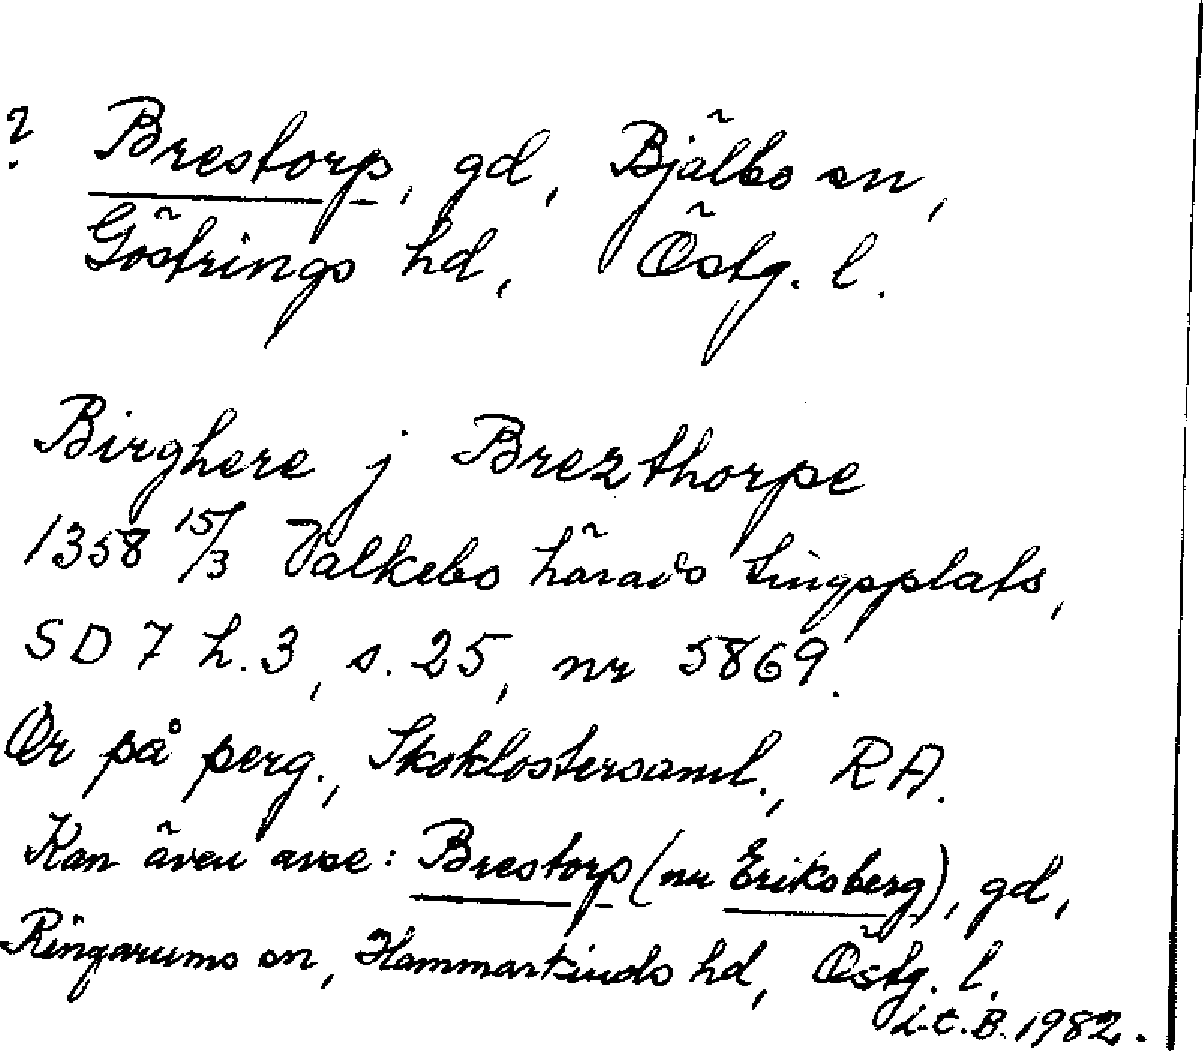 ? Brestorp, gd, Bjälbo sn,
Göstrings hd, Östg. l.
Birghere j Brezthorpe
1358 15/3 Valkebo härads tingsplats,
SD 7 h. 3, s. 25, nr 5869.
Or på perg., Skoklostersaml., RA.
Kan även avse: Brestorp (nu Eriksberg), gd,
Ringarums sn, Hammarkinds hd, Östg. l.
L.C.B. 1982.